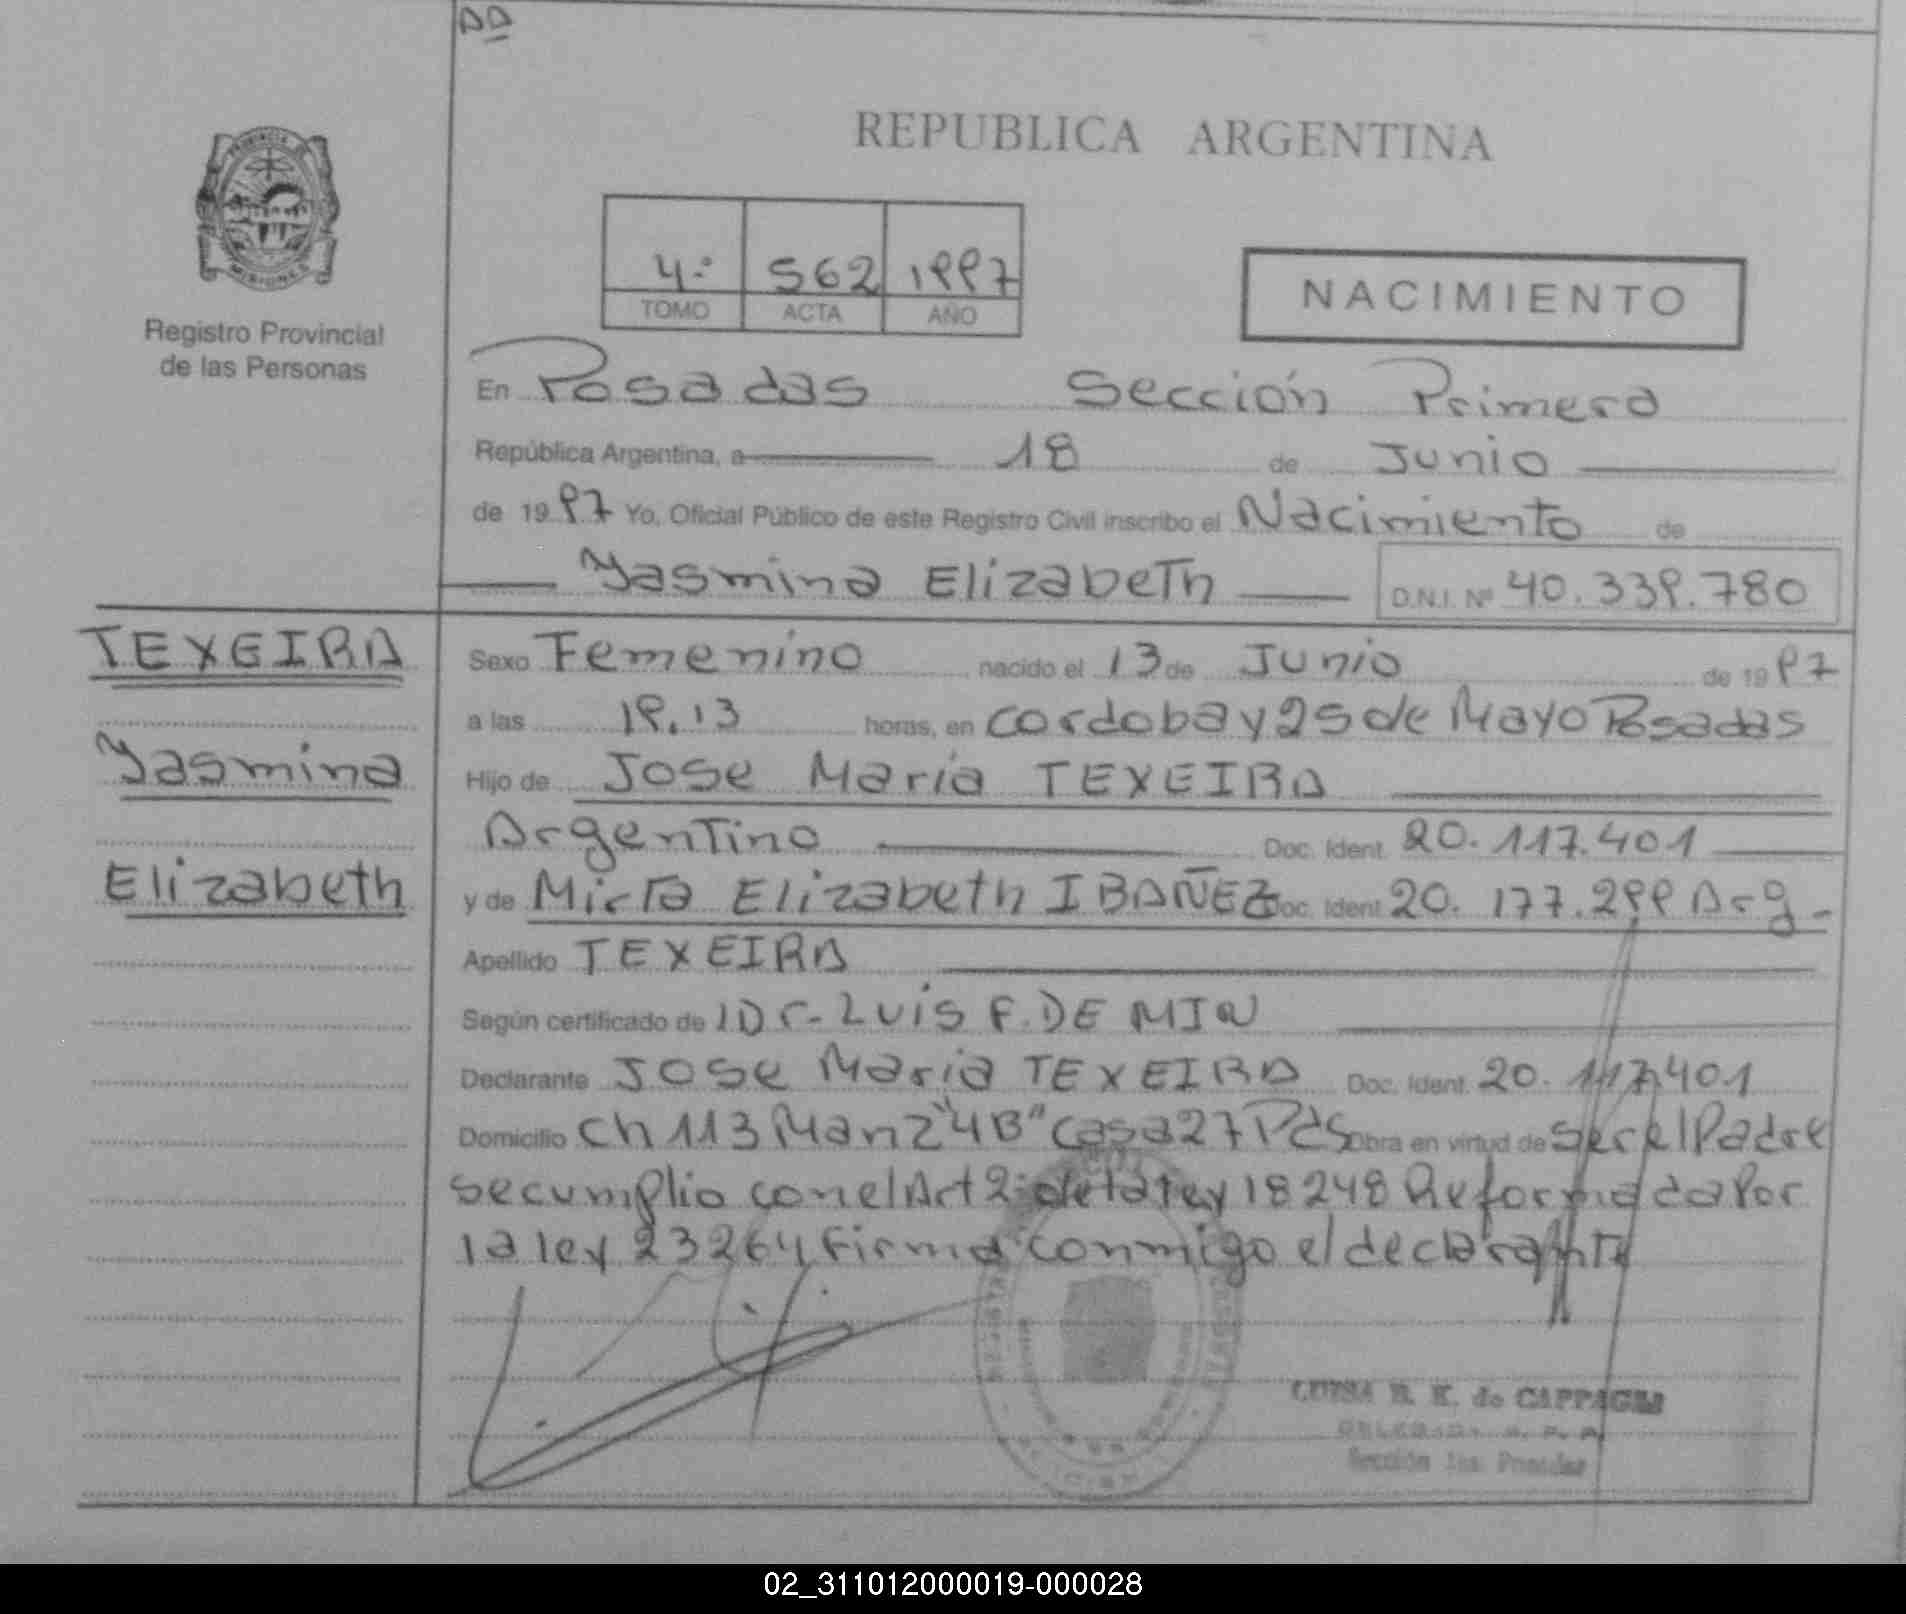 DD
REPUBLICA ARGENTINA
Registro Provincial
de las Personas
4º 562 1997
TOMO ACTA AÑO
NACIMIENTO
En Posadas Sección Primera
República Argentina, a 18 de Junio
de 1997 Yo, Oficial Público de este Registro Civil inscribo el Nacimiento de
Yasmina Elizabeth D.N.I. Nº 40.339.780
TEXEIRA
Yasmina
Elizabeth
Sexo Femenino nacido el 13 de Junio de 1997
a las 19.13 horas, en Cordoba y 25 de Mayo Posadas
Hijo de Jose Maria TEXEIRA
Argentino Doc. Ident. 20.117.401
y de Mirta Elizabeth IBAÑEZ Doc. Ident. 20.177.299 Arg.-
Apellido TEXEIRA
Según certificado de Dr. Luis F. DE MIN
Declarante Jose Maria TEXEIRA Doc. Ident. 20.117.401
Domicilio Ch 113 Manz "4B" casa 27 Pds Obra en virtud de ser el Padre
se cumplio con el Art 2º de la ley 18248 Reformada Por
la ley 23264 firma conmigo el declarante
LUISA R. K. de
Sección 1ra. Posadas
02_311012000019-000028